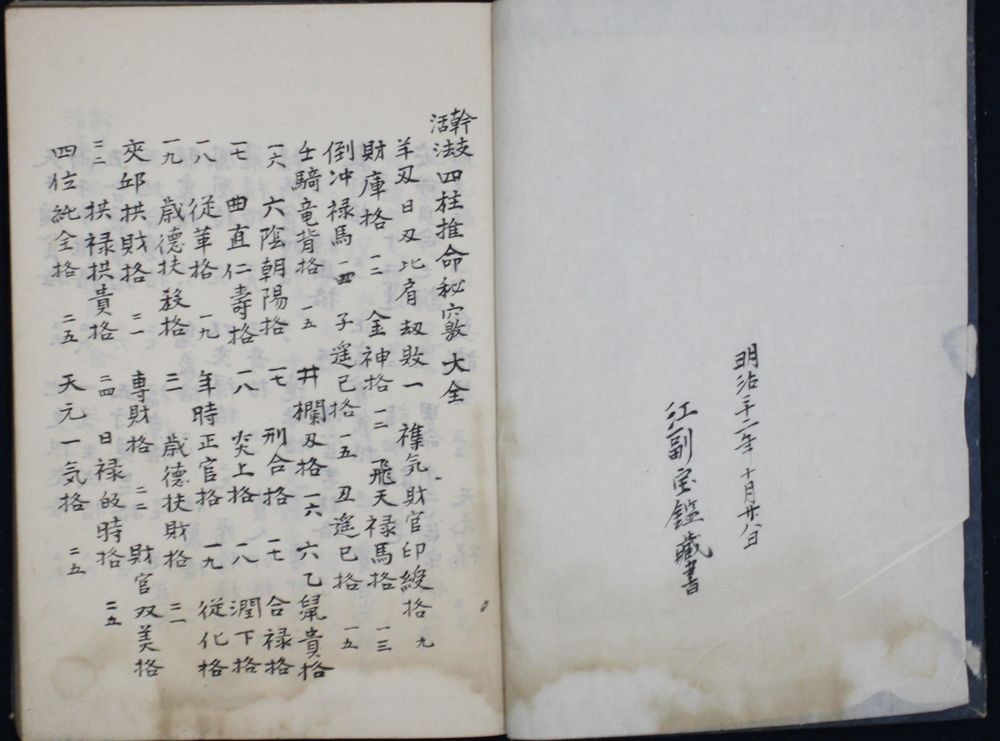 明治三十二年十月廿八日
江副宝鑑蔵書
幹支活法四柱推命秘窾大全
羊刄日刄比肩刼敗一 襍気財官印綬格九
財庫格一二 金神格一二 飛天禄馬格一三
倒冲禄馬一四 子遥巳格一五 丑遥巳格一五
壬騎竜背格一五 井欄刄格一六 六乙鼠貴格
一六 六陰朝陽格一七 刑合格一七 合禄格
一七 曲直仁寿格一八 炎上格一八 潤下格
一八 従革格一九 年時正官格一九 従化格
一九 歳德扶殺格二一 歳德扶財格二一
夾邱拱財格二一 専財格二二 財官双美格
二二 拱禄拱貴格二四 日禄的時格二五
四位純全格二五 天元一気格二五